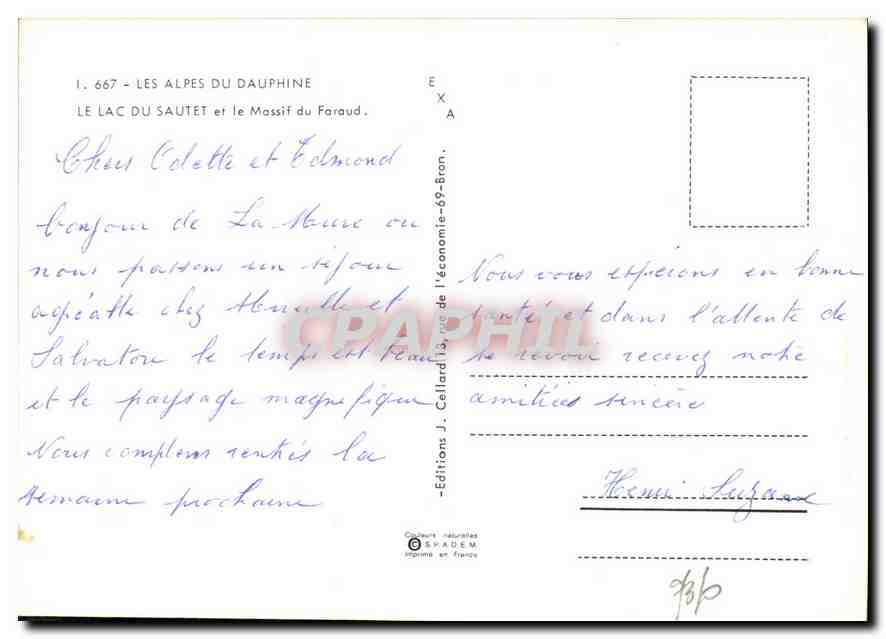 I. 667 - LES ALPES DU DAUPHINE
LE LAC DU SAUTET et le Massif du Faraud.
Chers Odette et Edmond
bonjour de La Mure ou
nous passons un séjour
agréable chez Mireille et
Salvatore le temps est beau
et le paysage magnifique
Nous comptons rentrés la
semaine prochaine
E
X
A
-Editions J. Cellard 13, rue de l'économie-69-Bron.
Couleurs naturelles
© S.P.A.D.E.M.
Imprimé en France
Nous vous espérons en bonne
santé et dans l'attente de
se revoir recevez notre
amitiées sincère
Henri Suzanne
CPAPHIL